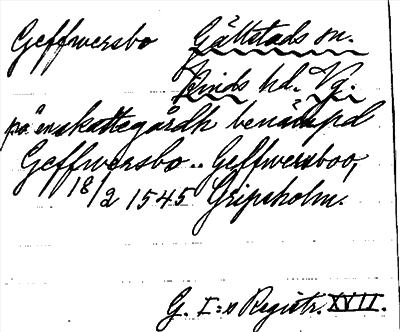 Geffwersbo Gällstads sn.
Kinds hd. Vg.
på en skattegårdh benämpd
Geffwersbo .. Geffwersboo,
18/2 1545 Gripsholm.
G. I:s Registr. XVII.